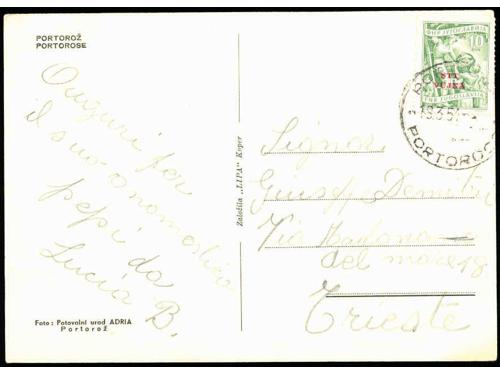 PORTOROŽ
PORTOROSE
Auguri per
il suo onomastico
pepi da
Lucia B.
Foto: Potovalni urad ADRIA
Portorož
Založila „LIPA" Koper
10
STT
VUJNA
PORTOROŽ
Signor
Giusep Demitri
Via Madonna
del mare 18
Trieste